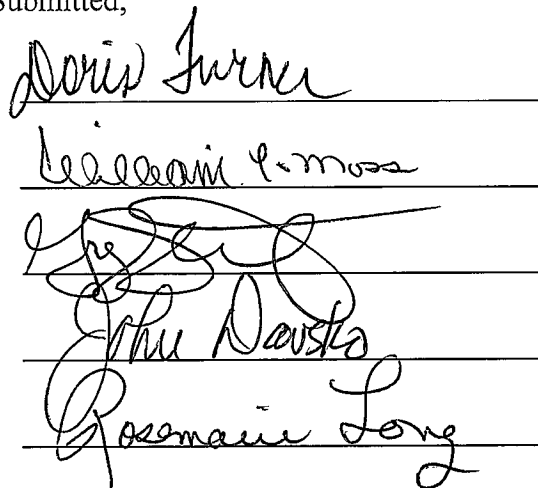 Submitted,
Doris Turner
William P. Moss
Greg
John Davsko
Rosemarie Long